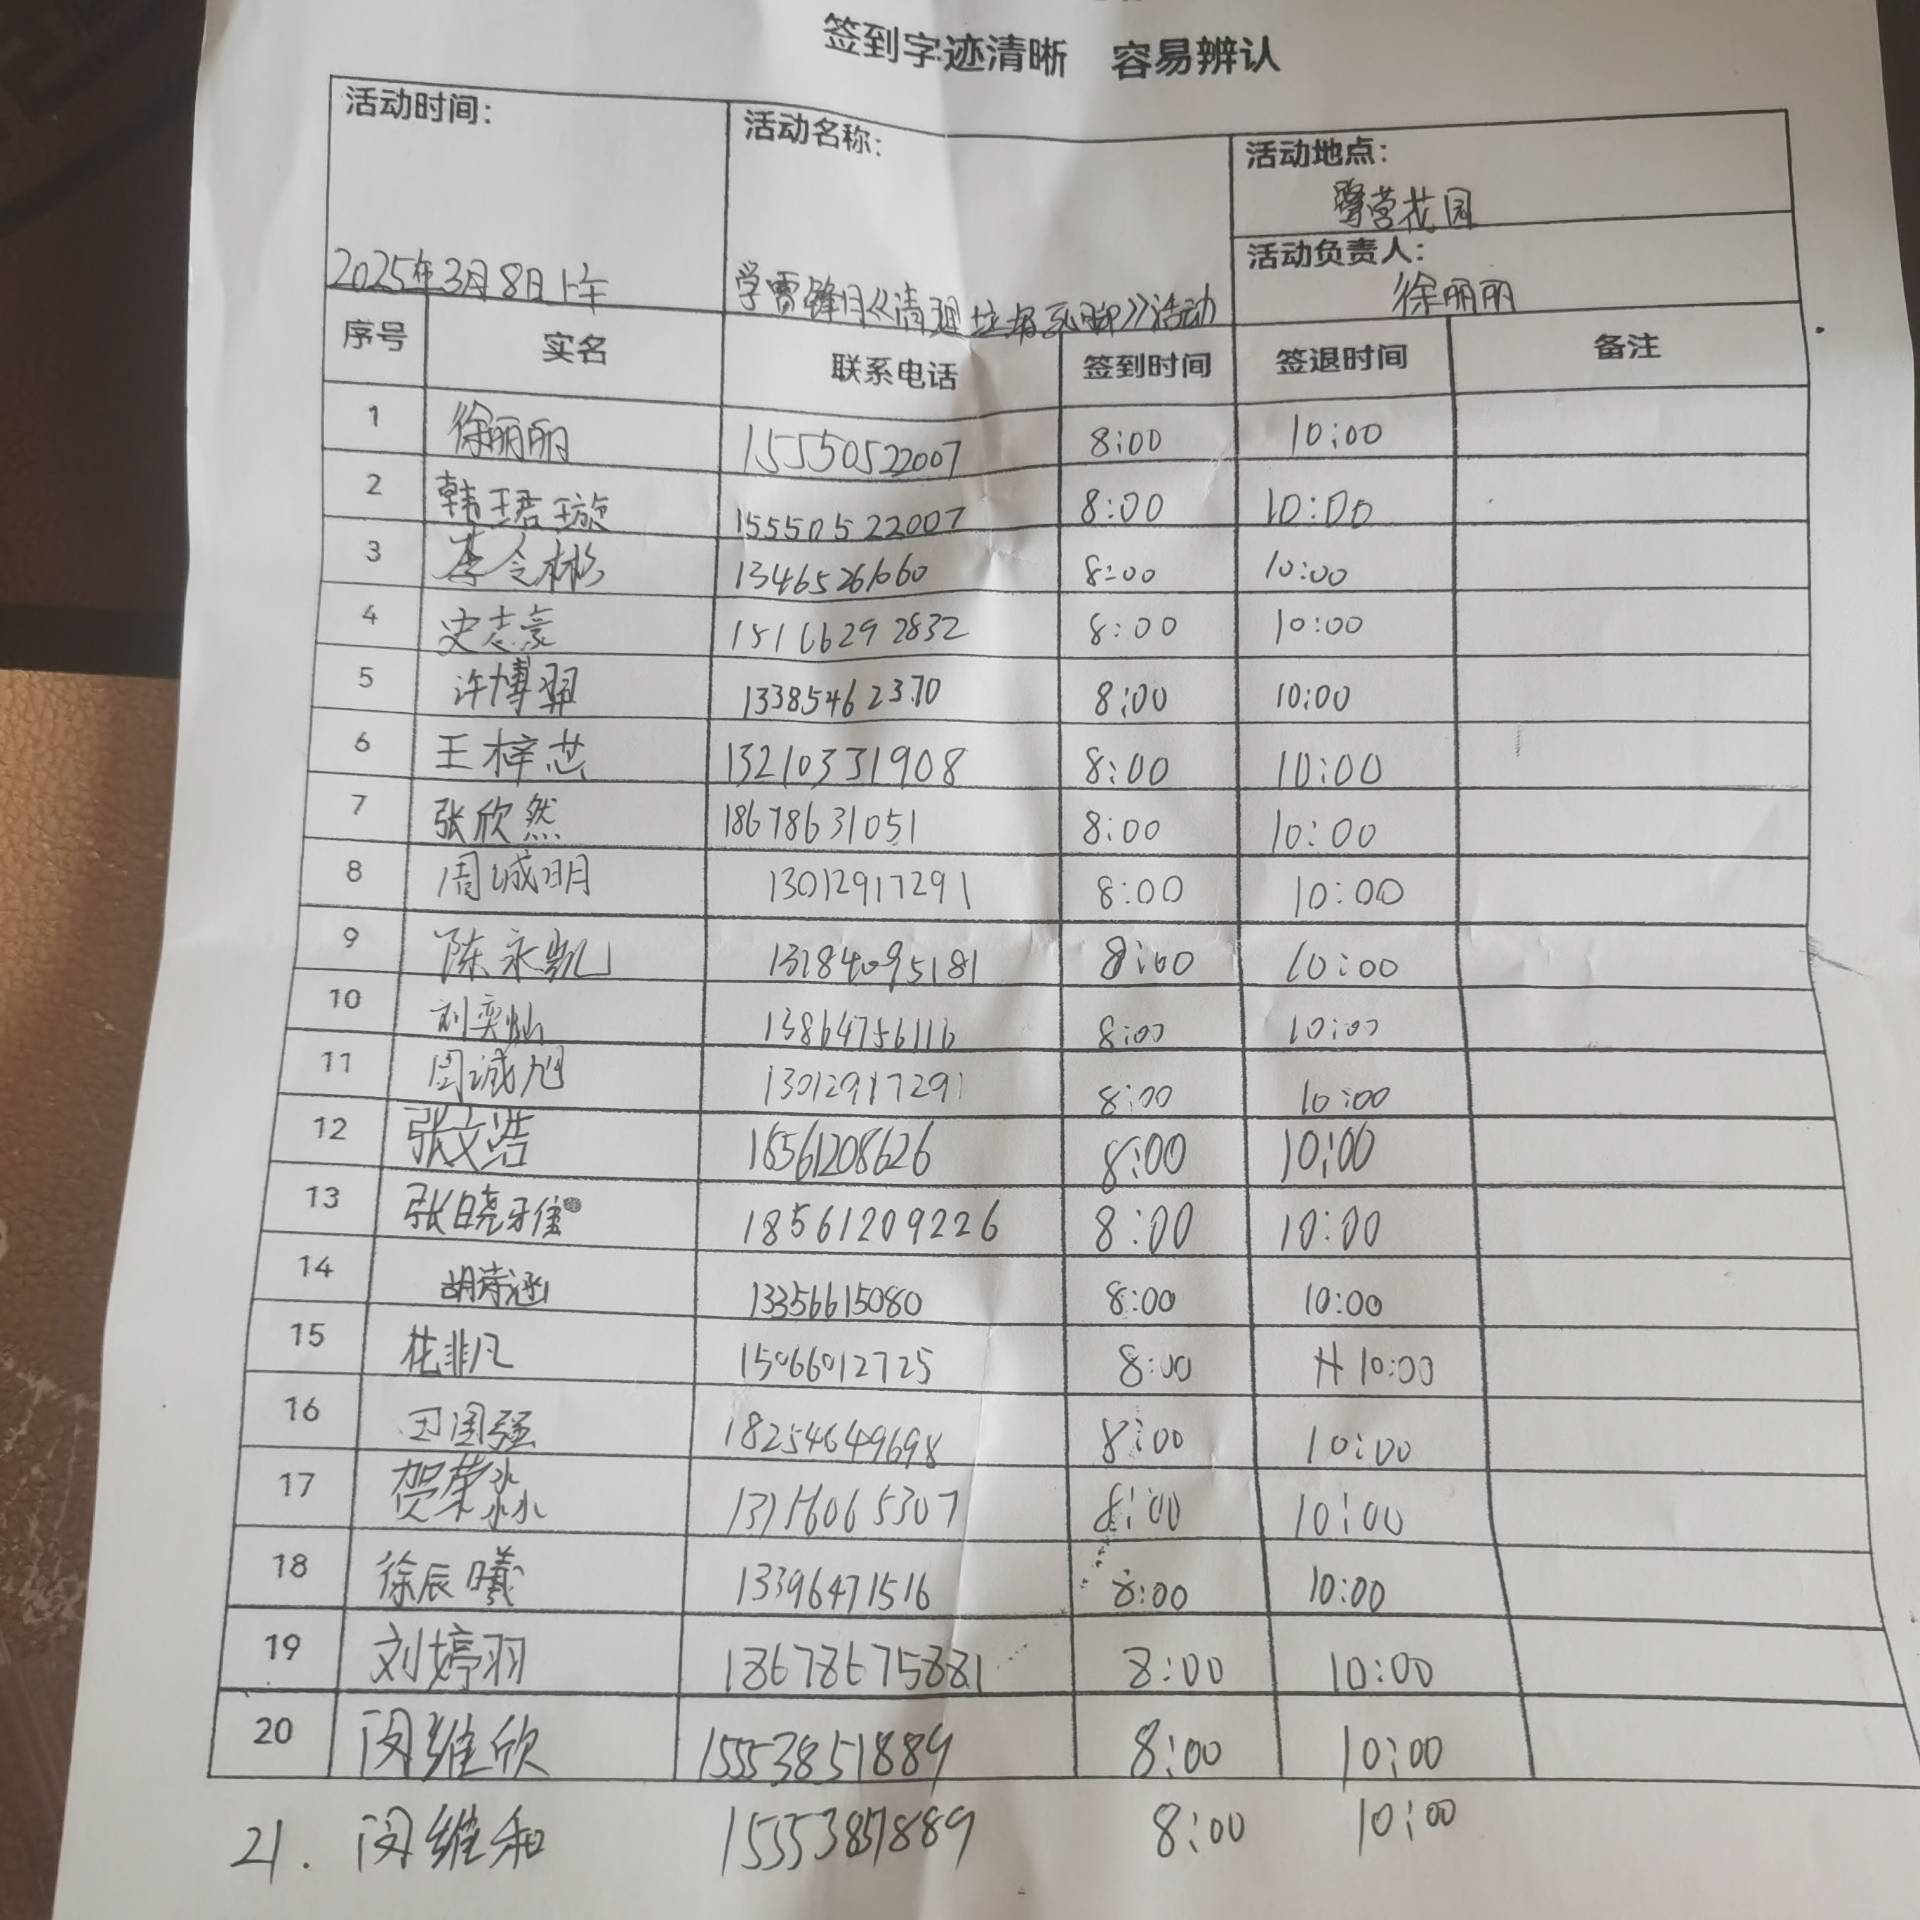 签到字迹清晰 容易辨认
活动时间： 活动名称： 活动地点：
花园
活动负责人：
2025年3月8日上午 学雷锋月《清理垃圾死脚》活动 徐丽丽
序号 实名 联系电话 签到时间 签退时间 备注
1 徐丽丽 15550522007 8:00 10:00
2 韩珺璇 15550522007 8:00 10:00
3 李令彬 13465261060 8:00 10:00
4 史志豪 15166292832 8:00 10:00
5 许博羿 13385462370 8:00 10:00
6 王梓芯 13210331908 8:00 10:00
7 张欣然 18678631051 8:00 10:00
8 周诚明 13012917291 8:00 10:00
9 陈永凯 13184095181 8:00 10:00
10 刘奕灿 13864756116 8:00 10:00
11 周诚旭 13012917291 8:00 10:00
12 张文浩 18561208626 8:00 10:00
13 张晓雅 18561209226 8:00 10:00
14 胡诗涵 13356615080 8:00 10:00
15 杜非凡 15066012725 8:00 10:00
16 田国强 18254649698 8:00 10:00
17 贺荣淼 8:00 10:00
18 徐辰曦 13396471516 8:00 10:00
19 刘婷羽 18678675881 8:00 10:00
20 闵维欣 15553851889 8:00 10:00
21. 闵维和 15553851889 8:00 10:00